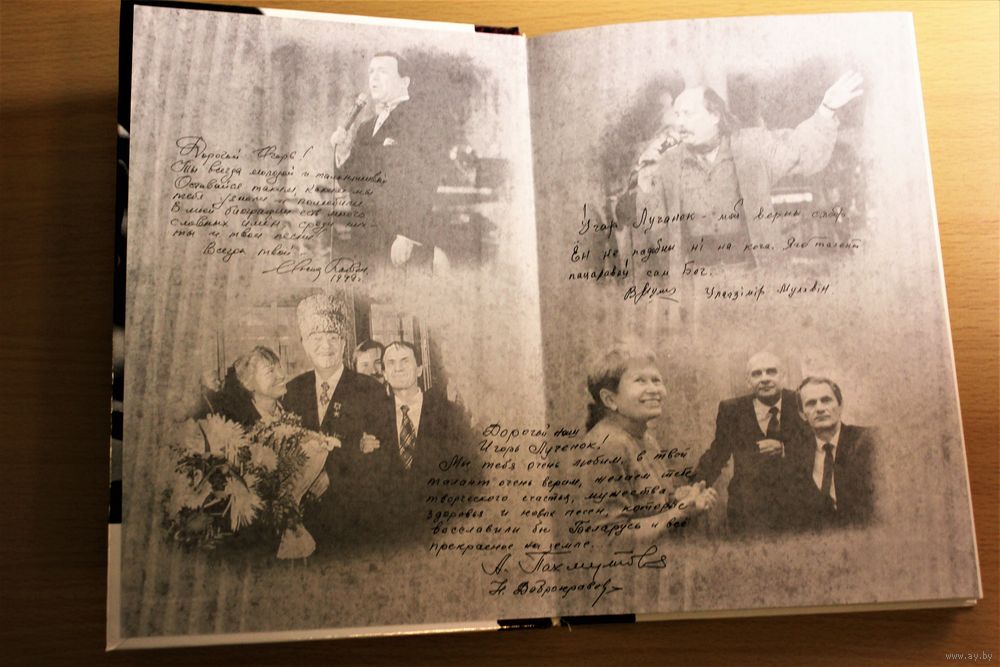 Дорогой Игорь!
Ты всегда молодой и талантливый
Оставайся таким, каким мы
тебя узнали и полюбили.
В моей биографии есть много
славных имён, среди них –
ты и твои песни
Всегда твой –
Иосиф Кобзон
1998г.
Ігар Лучанок – мой верны сябар
Ён не падобны ні на кога. Яго талент
пацалаваў сам Бог.
Уладзімір Мулявін
Дорогой наш
Игорь Лученок!
Мы тебя очень любим, в твой
талант очень верим, желаем тебе
творческого счастья, мужества
здоровья и новых песен, которые
восславили бы Беларусь и всё
прекрасное на земле.
А. Пахмутова
Н. Добронравов
www.ay.by